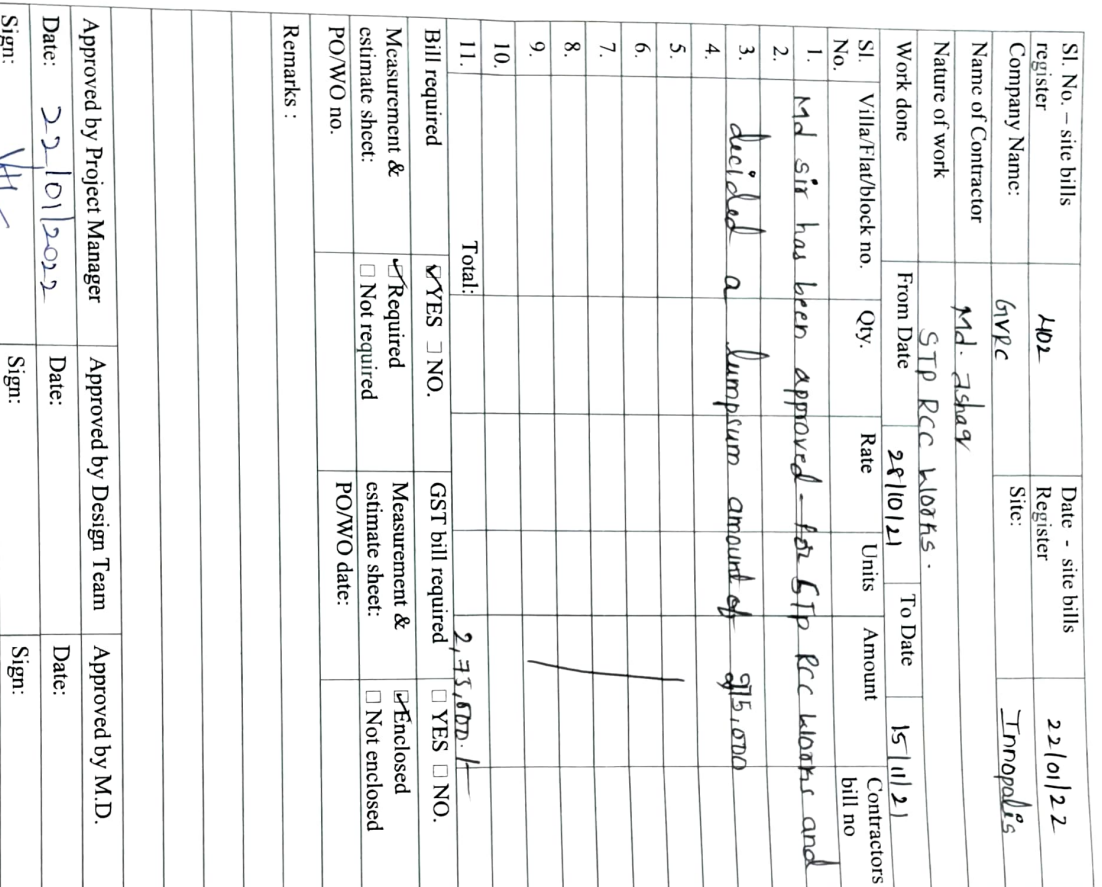 Sl. No. – site bills register 402 Date - site bills Register 22/01/22
Company Name: GVRC Site: Innopolis
Name of Contractor Md. Ishaq
Nature of work STP RCC Works.
Work done From Date 28/10/21 To Date 15/11/21
Sl. No. Villa/Flat/block no. Qty. Rate Units Amount Contractors bill no
1. Md sir has been approved - for STP RCC Works and
2.
3. decided a lumpsum amount of
4.
5.
6.
7.
8.
9.
10.
11. Total: 2,75,000./-
Bill required ☑ YES ☐ NO. GST bill required ☐ YES ☐ NO.
Measurement & estimate sheet: ☑ Required ☐ Not required Measurement & estimate sheet: ☑ Enclosed ☐ Not enclosed
PO/WO no. PO/WO date:
Remarks :
Approved by Project Manager Approved by Design Team Approved by M.D.
Date: 22/01/2022 Date: Date:
Sign: Sign: Sign: